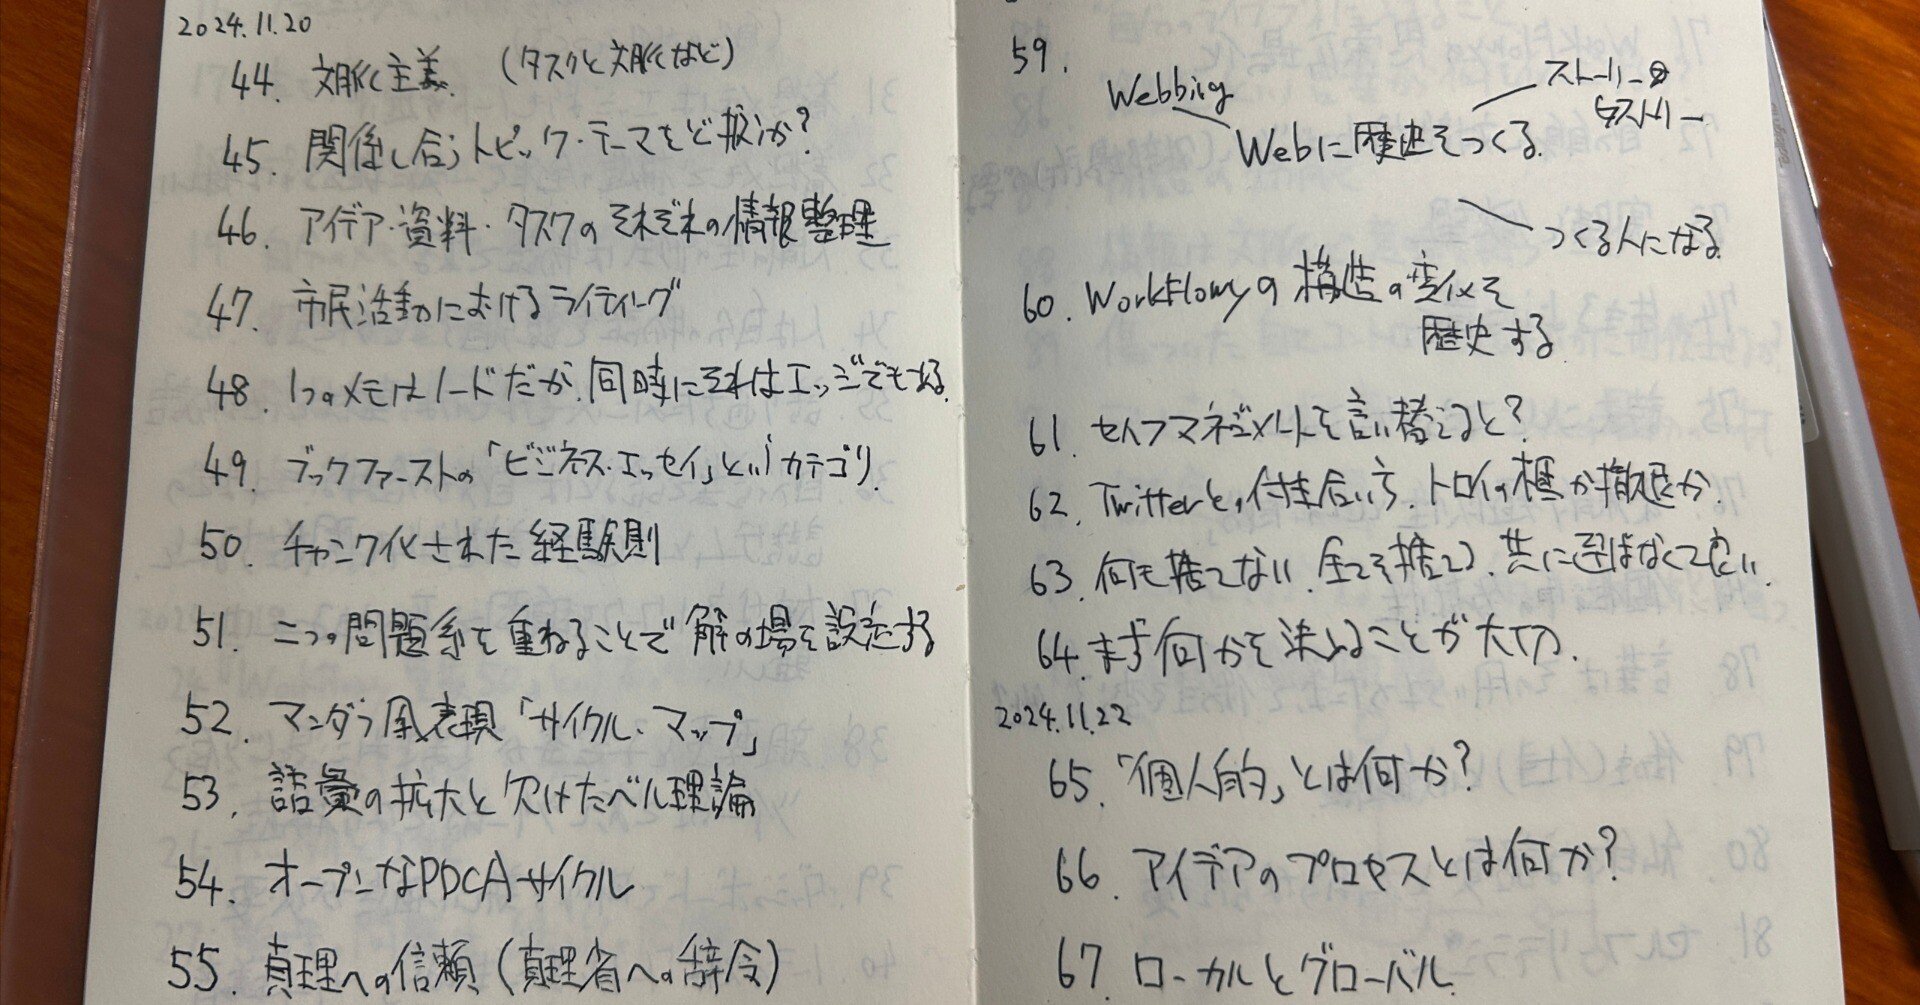 2024.11.20
44. 文脈主義 (タスクと文脈など)
45. 関係し合うトピック・テーマをどう扱うか?
46. アイデア・資料・タスクのそれぞれの情報整理
47. 市民活動におけるライティング
48. 1つのメモはノードだが、同時にそれはエッジでもある
49. ブックファーストの「ビジネス・エッセイ」というカテゴリ
50. チャンク化された経験則
51. 二つの問題系を重ねることで解の場を設定する
52. マンダラ風表現「サイクル・マップ」
53. 語彙の拡大と欠けたベル理論
54. オープンなPDCAサイクル
55. 真理への信頼(真理省への辞令)
59.
Webbing
Webに歴史をつくる
ストーリー
ヒストリー
つくる人になる
60. WorkFlowyの構造の変化を
歴史する
61. セルフマネジメントを言い替えると?
62. Twitterとの付き合い方、トロイの木馬か撤退か
63. 何も捨てない、全てを捨てる、共に選ばなくて良い
64. まず何かを決めることが大切
2024.11.22
65. 「個人的」とは何か?
66. アイデアのプロセスとは何か?
67. ローカルとグローバル